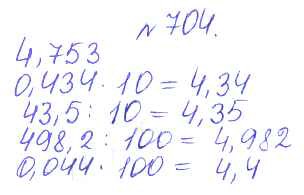 № 704.
4,753
0,434 · 10 = 4,34
43,5 : 10 = 4,35
498,2 : 100 = 4,982
0,044 · 100 = 4,4